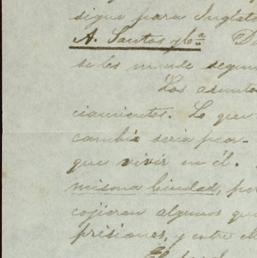 sigue para Inglat
A. Santos y Ca. D
se les mande segun
Los asunto
ciamientos. Lo que
cambio seria peor
que vivir en él.
misma Ciudad, por
cojieran algunos que
prisiones, y entre el